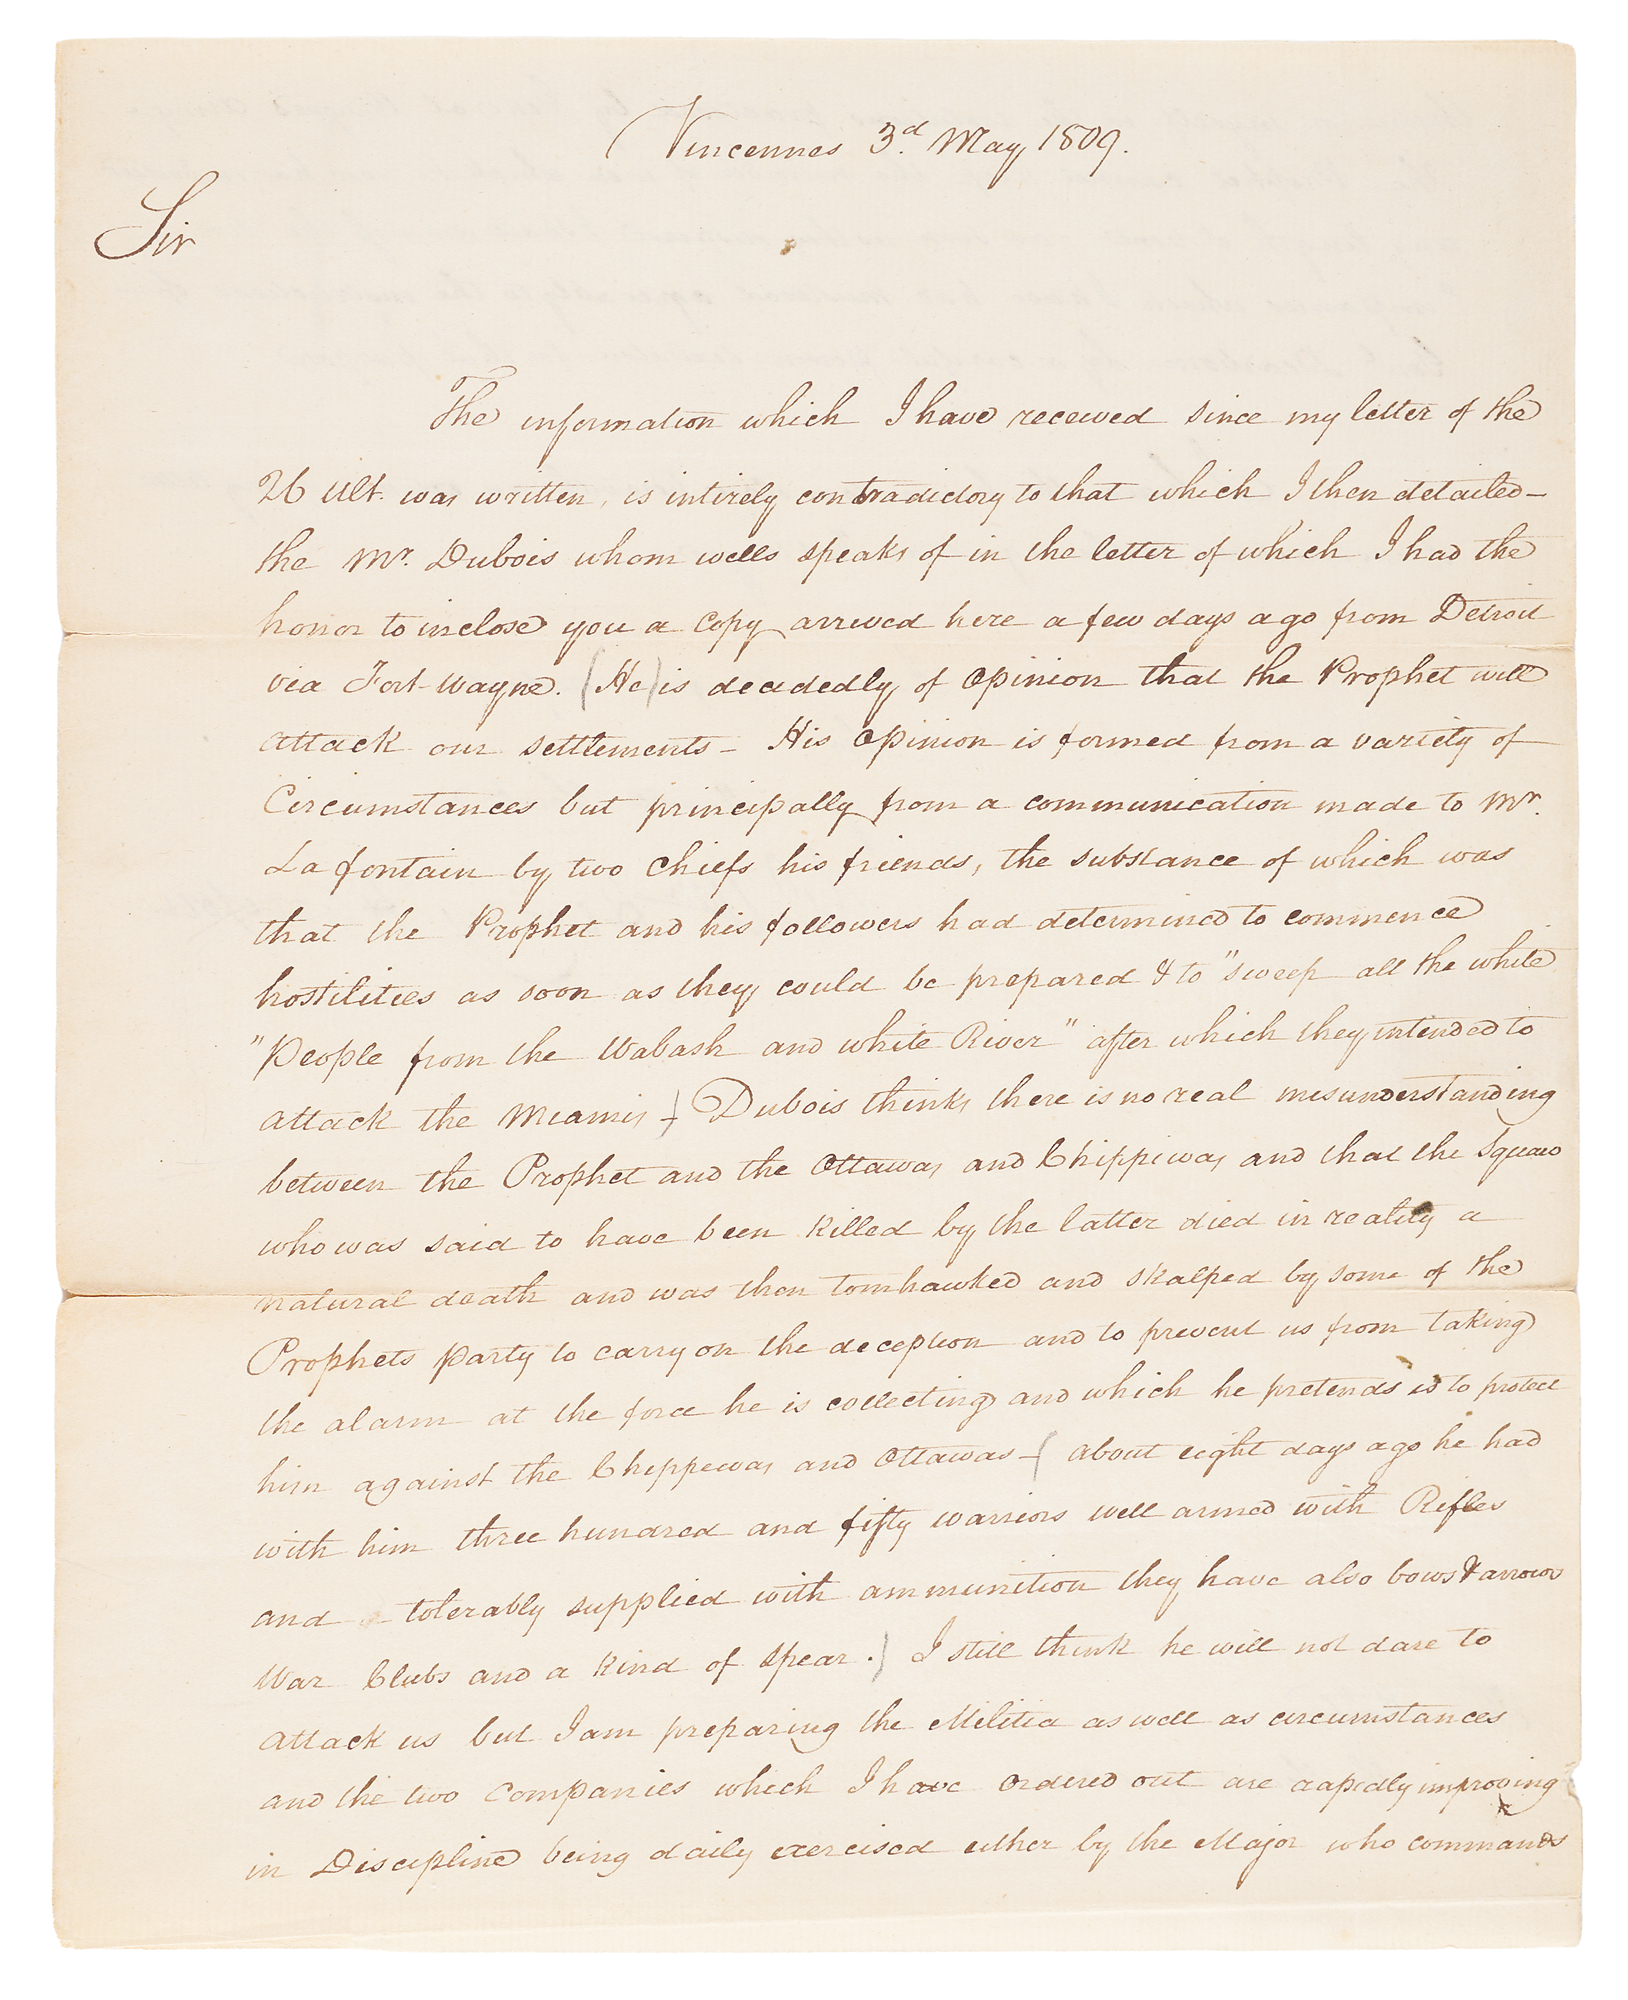 Vincennes 3.d May 1809.
Sir
The information which I have received since my letter of the
26 Ult. was written, is intirely contradictory to that which I then detailed –
the Mr. Dubois whom wells speaks of in the letter of which I had the
honor to inclose you a copy arrived here a few days ago from Detroit
via Fort-Wayne. (He) is decidedly of opinion that the Prophet will
attack our settlements – His opinion is formed from a variety of
Circumstances but principally from a communication made to Mr.
La fontain by two Chiefs his friends, the substance of which was
that the Prophet and his followers had determined to commence
hostilities as soon as they could be prepared & to "sweep all the white
"People from the Wabash and white River" after which they intended to
attack the Miamis –) Dubois thinks there is no real misunderstanding
between the Prophet and the Ottaways and Chippiways and that the Squaw
who was said to have been killed by the latter died in reality a
natural death and was then tomhawked and skalped by some of the
Prophets party to carry on the deception and to prevent us from taking
the alarm at the force he is collecting and which he pretends is to protect
him against the Cheppeways and Ottawas – ( about eight days ago he had
with him three hundred and fifty warriors well armed with Rifles
and – tolerably supplied with ammunition they have also bows & arrows
War Clubs and a kind of spear.) I still think he will not dare to
attack us but I am preparing the Militia as well as circumstances
and the two Companies which I have ordered out are rapidly improving
in Discipline being daily exercised either by the Major who commands